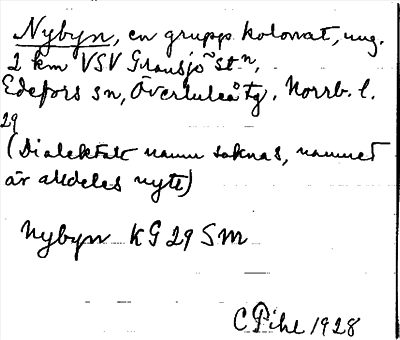 Nybyn, en grupp kolonat, ung.
2 km VSV Gransjö st:n,
Edefors sn, Överluleå tg. Norrb. l.
29
(Dialektalt namn saknas, namnet
är alldeles nytt)
Nybyn KG 29 SM
C Pihl 1928